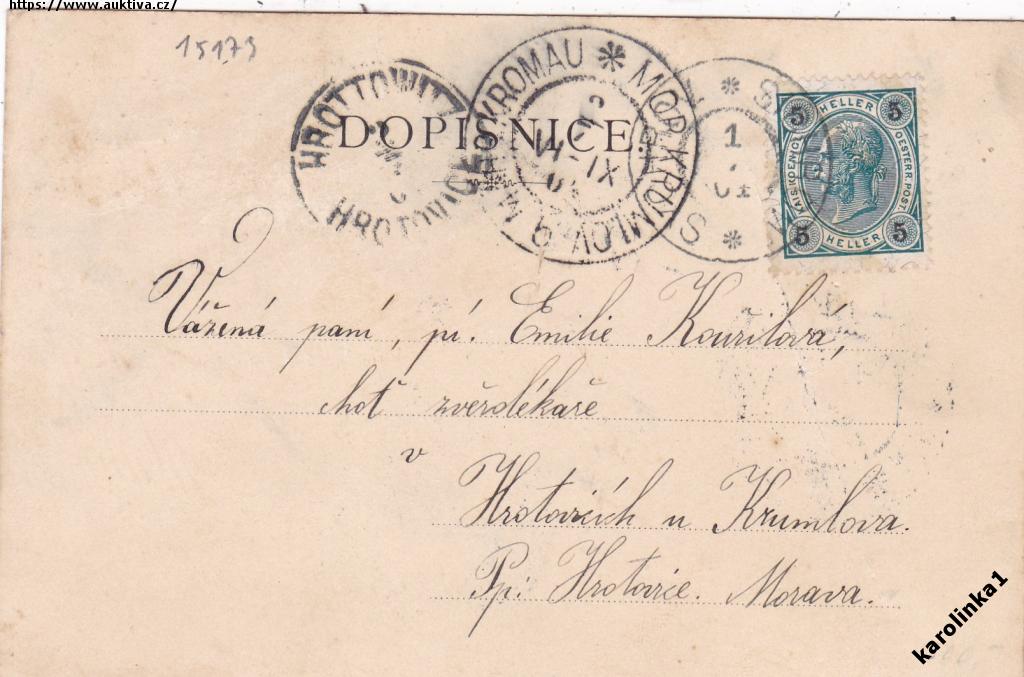 https://www.auktiva.cz/
15173
HROTTOWITZ
HROTOVICE
MÄHR. KROMAU * MOR. KRUMLOV
IX
DOPISNICE.
1
01
5 HELLER 5
KAIS. KOENIGL.
OESTERR. POST.
5 HELLER 5
Vážená paní, pí. Emilie Kouřilová,
choť zvěrolékaře
v
Hrotovicích u Krumlova.
Pp: Hrotovice. Morava.
karolinka1